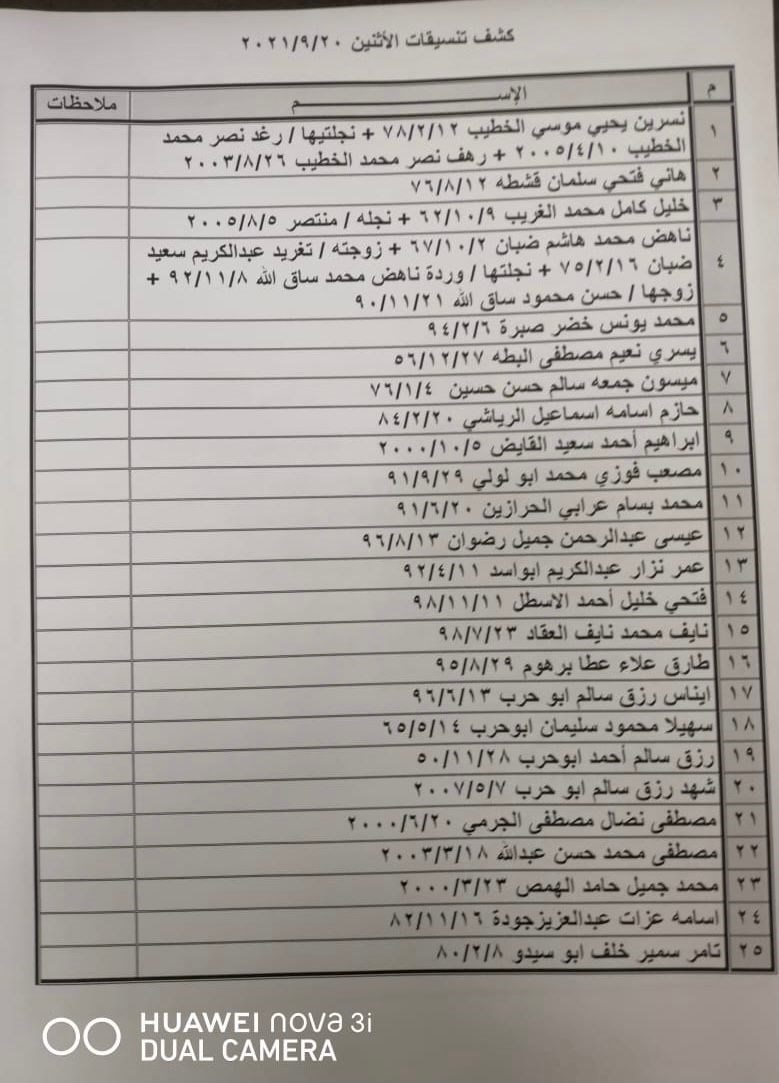 كشف تنسيقات الأثنين ٢٠٢١/٩/٢٠
م الإســــم ملاحظات
١ نسرين يحيي موسي الخطيب ٧٨/٢/١٢ + نجلتيها / رغد نصر محمد
الخطيب ٢٠٠٥/٤/١٠ + رهف نصر محمد الخطيب ٢٠٠٣/٨/٢٦
٢ هاني فتحي سلمان قشطه ٧٦/٨/١٢
٣ خليل كامل محمد الغريب ٦٢/١٠/٩ + نجله / منتصر ٢٠٠٥/٨/٥
٤ ناهض محمد هاشم ضبان ٦٧/١٠/٢ + زوجته / تغريد عبدالكريم سعيد
ضبان ٧٥/٢/١٦ + نجلتها / وردة ناهض محمد ساق الله ٩٢/١١/٨ +
زوجها / حسن محمود ساق الله ٩٠/١١/٢١
٥ محمد يونس خضر صبرة ٩٤/٢/٦
٦ يسري نعيم مصطفى البطه ٥٦/١٢/٢٧
٧ ميسون جمعه سالم حسن حسين ٧٦/١/٤
٨ حازم اسامه اسماعيل الرياشي ٨٤/٢/٢٠
٩ ابراهيم أحمد سعيد القايض ٢٠٠٠/١٠/٥
١٠ مصعب فوزي محمد ابو لولي ٩١/٩/٢٩
١١ محمد بسام عرابي الحرازين ٩١/٦/٢٠
١٢ عيسى عبدالرحمن جميل رضوان ٩٦/٨/١٣
١٣ عمر نزار عبدالكريم ابواسد ٩٢/٤/١١
١٤ فتحي خليل أحمد الاسطل ٩٨/١١/١١
١٥ نايف محمد نايف العقاد ٩٨/٧/٢٣
١٦ طارق علاء عطا برهوم ٩٥/٨/٢٩
١٧ ايناس رزق سالم ابو حرب ٩٦/٦/١٣
١٨ سهيلا محمود سليمان ابوحرب ٦٥/٥/١٤
١٩ رزق سالم أحمد ابوحرب ٥٠/١١/٢٨
٢٠ شهد رزق سالم ابو حرب ٢٠٠٧/٥/٧
٢١ مصطفى نضال مصطفى الجرمي ٢٠٠٠/٦/٢٠
٢٢ مصطفى محمد حسن عبدالله ٢٠٠٣/٣/١٨
٢٣ محمد جميل حامد الهمص ٢٠٠٠/٣/٢٣
٢٤ اسامه عزات عبدالعزيزجودة ٨٢/١١/١٦
٢٥ تامر سمير خلف ابو سيدو ٨٠/٢/٨
HUAWEI nova 3i
DUAL CAMERA